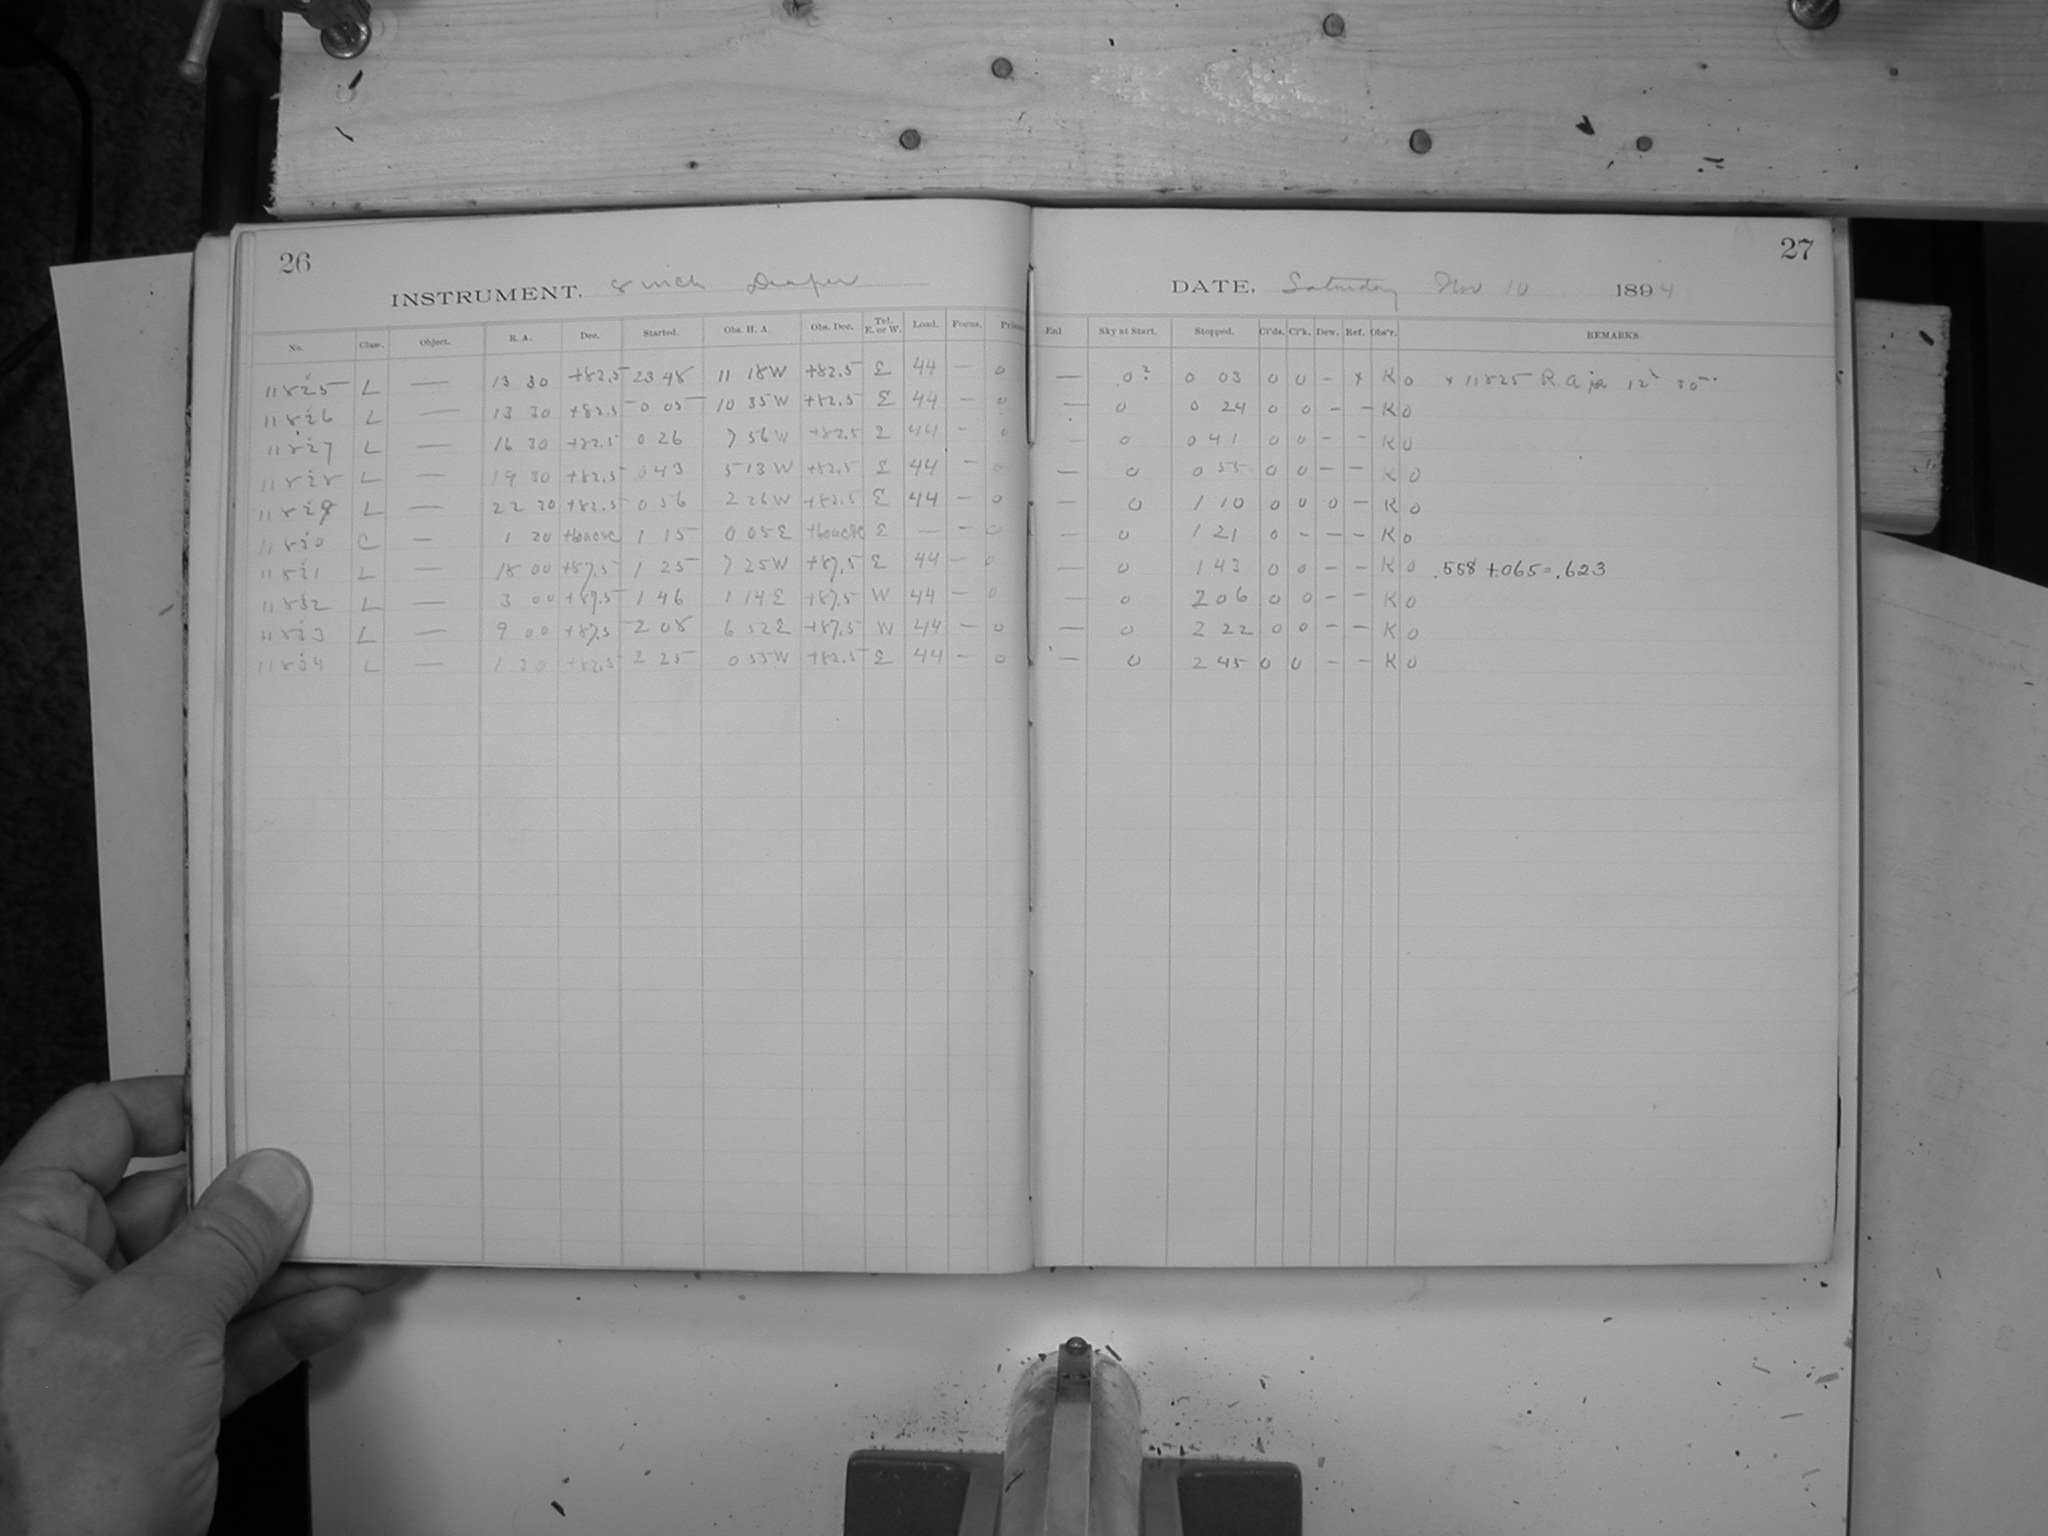 26
INSTRUMENT. 8 inch Draper
No. Class. Object. R. A. Dec. Started. Obs. H. A. Obs. Dec. Tel. E. or W. Load. Focus. Prism
11825 L — 13 30 +82.5 23 48 11 18W +82.5 E 44 — 0
11826 L — 13 30 +82.5 0 05 10 35W +82.5 E 44 — 0
11827 L — 16 30 +82.5 0 26 7 56W +82.5 E 44 — 0
11828 L — 19 30 +82.5 0 43 5 13W +82.5 E 44 — 0
11829 L — 22 30 +82.5 0 56 2 26W +82.5 E 44 — 0
11830 C — 1 20 1 15 0 05E E — — 0
11831 L — 18 00 +87.5 1 25 7 25W +87.5 E 44 — 0
11832 L — 3 00 +87.5 1 46 1 14E +87.5 W 44 — 0
11833 L — 9 00 +87.5 2 08 6 52E +87.5 W 44 — 0
11834 L — 1 30 +82.5 2 25 0 55W +82.5 E 44 — 0
27
DATE, Saturday Nov 10 1894
Enl Sky at Start. Stopped. Cl'ds. Cl'k. Dew. Ref. Obs'r. REMARKS.
— 0? 0 03 0 0 - x K 0 x 11825 R.A is 12h 30m.
— 0 0 24 0 0 - - K 0
— 0 0 41 0 0 - - K 0
— 0 0 55 0 0 - - K 0
— 0 1 10 0 0 0 - K 0
— 0 1 21 0 - - - K 0
— 0 1 43 0 0 - - K 0 .558 + .065 = .623
— 0 2 06 0 0 - - K 0
— 0 2 22 0 0 - - K 0
— 0 2 45 0 0 - - K 0